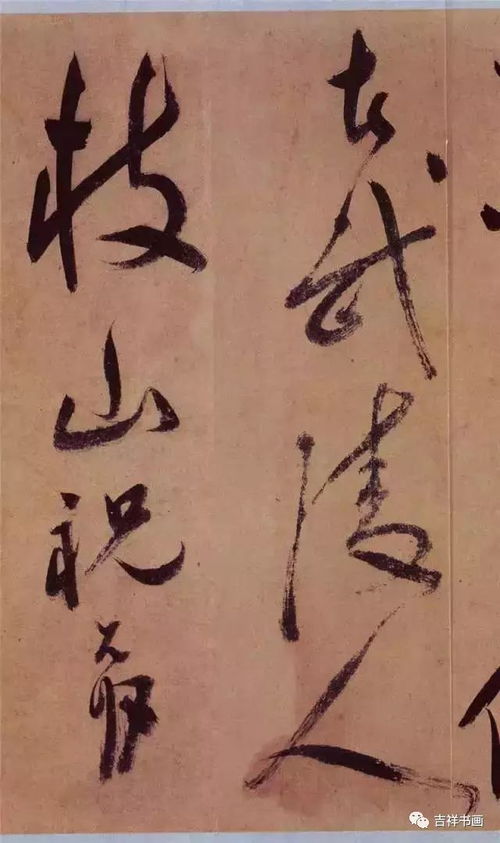 武陵人
枝山祝允明
吉祥书画